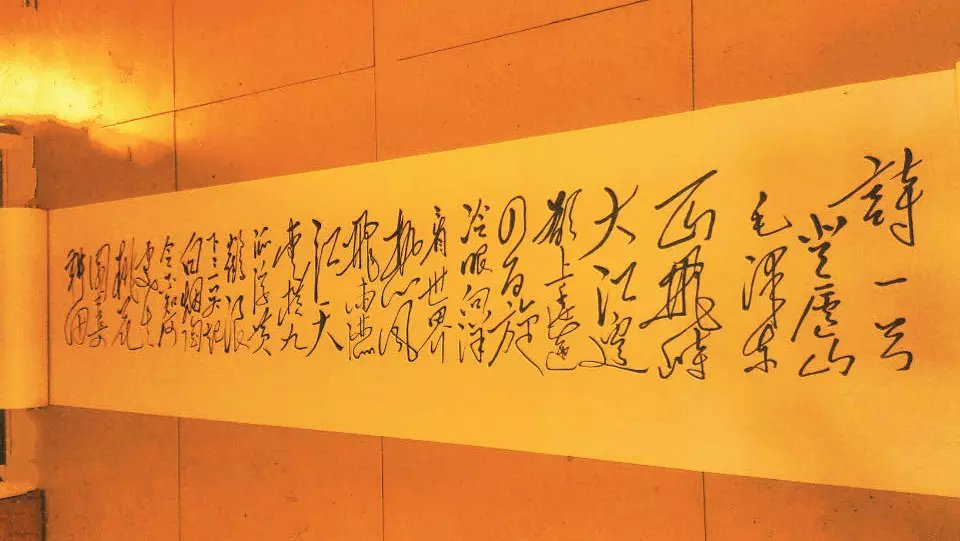 詩一首
登廬山
毛澤東
一山飛峙
大江邊
欲上逶迤
四百旋
冷眼向洋
看世界
熱風
飛雨洒
江天
雲橫九
派浮黃
鶴浪
下三吳起
白烟陶
令不知何
處去
桃花
園里可
耕田